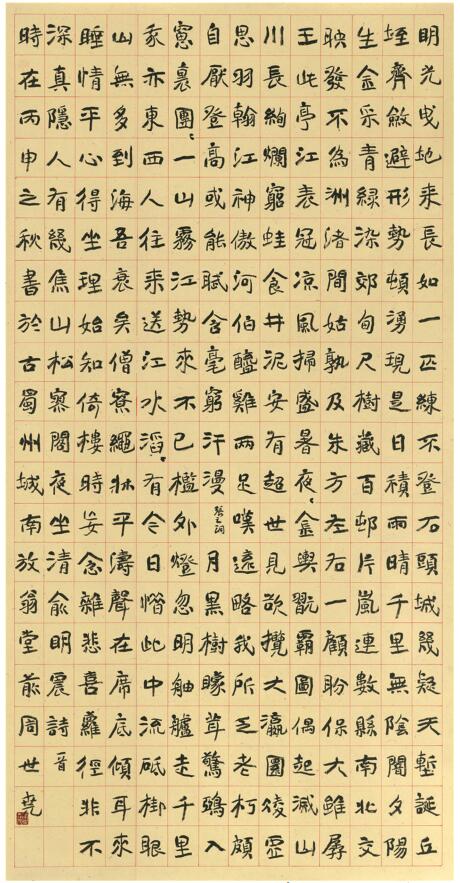 明光曳地来長如一匹練不登石頭城幾疑天塹誕丘
垤齊斂避形勢頓湧現是日積雨晴千里無陰闇夕陽
生金采青綠染郊甸尺樹藏百邨片嵐連數縣南北交
映發不為洲渚間姑孰及朱方左右一顧盼保大雖孱
王此亭江表冠涼風掃盛暑夜〻金輿翫霸圖偶起滅山
川長絢爛窮蛙食井泥安有超世見欲攬大瀛圜陵雲
思羽翰江神傲河伯醯雞兩足嘆遠略我所乏老柯頗
自厭登高或能賦含毫窮汗漫月黑樹矇茸驚鴉入
窻裏團〻一山霧江勢來不已檻外燈忽明舳艫走千里
我亦東西人往来送江水滔〻有今日憯此中流砥柳眼
山無多到海吾衰矣僧寮繩牀平濤聲在席底傾耳來
睡情平心得坐理始知倚樓時妄念雜悲喜蘿徑非不
深真隱人有幾焦山松寥閣夜坐清俞明震詩晉
時在丙申之秋書於古蜀州城南放翁堂前周世堯